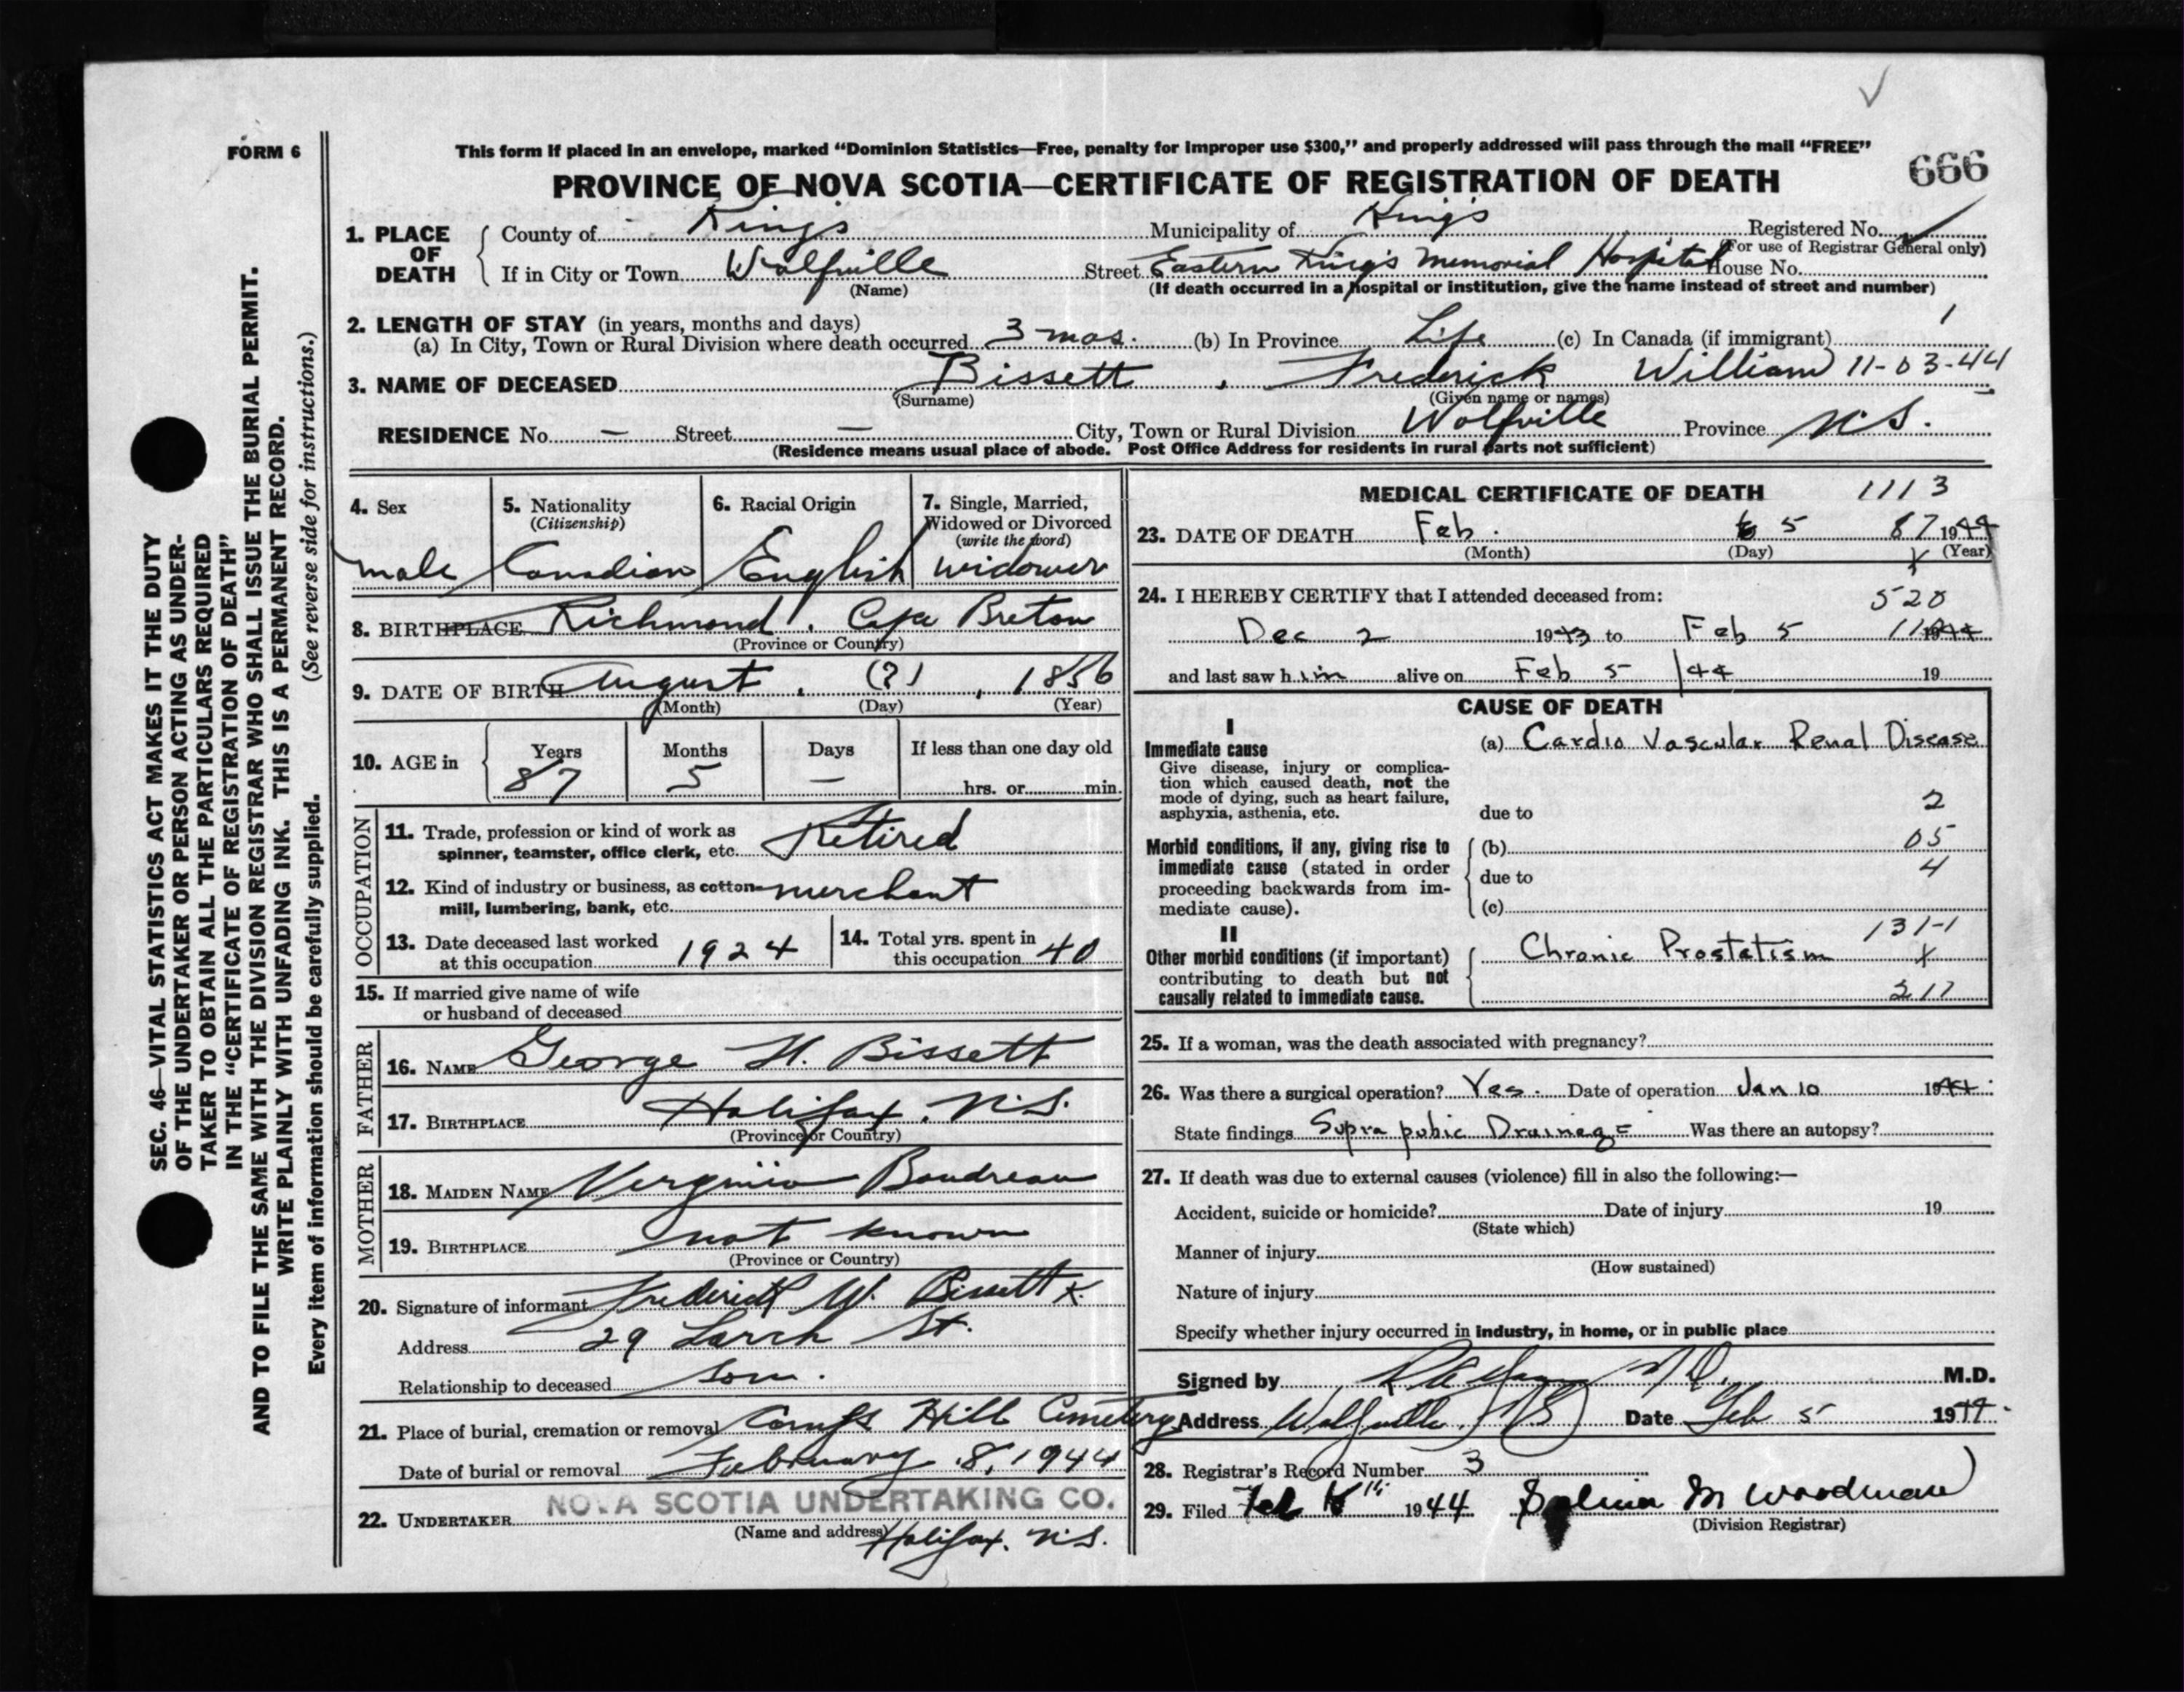 FORM 6
This form if placed in an envelope, marked “Dominion Statistics—Free, penalty for improper use $300,” and properly addressed will pass through the mail “FREE”
PROVINCE OF NOVA SCOTIA—CERTIFICATE OF REGISTRATION OF DEATH
666
1. PLACE OF DEATH
County of Kings Municipality of Kings Registered No.
(For use of Registrar General only)
If in City or Town Wolfville Street Eastern King's Memorial Hospital House No.
(Name) (If death occurred in a hospital or institution, give the name instead of street and number)
2. LENGTH OF STAY (in years, months and days)
(a) In City, Town or Rural Division where death occurred 3 mos. (b) In Province Life (c) In Canada (if immigrant) 1
3. NAME OF DECEASED Bissett, Frederick William 11-03-44
(Surname) (Given name or names)
RESIDENCE No. — Street — City, Town or Rural Division Wolfville Province N.S.
(Residence means usual place of abode. Post Office Address for residents in rural parts not sufficient)
SEC. 46—VITAL STATISTICS ACT MAKES IT THE DUTY
OF THE UNDERTAKER OR PERSON ACTING AS UNDER-
TAKER TO OBTAIN ALL THE PARTICULARS REQUIRED
IN THE “CERTIFICATE OF REGISTRATION OF DEATH”
AND TO FILE THE SAME WITH THE DIVISION REGISTRAR WHO SHALL ISSUE THE BURIAL PERMIT.
WRITE PLAINLY WITH UNFADING INK. THIS IS A PERMANENT RECORD.
Every item of information should be carefully supplied. (See reverse side for instructions.)
4. Sex male
5. Nationality (Citizenship) Canadian
6. Racial Origin English
7. Single, Married, Widowed or Divorced (write the word) widower
8. BIRTHPLACE Richmond, Cape Breton
(Province or Country)
9. DATE OF BIRTH August, (?), 1856
(Month) (Day) (Year)
10. AGE in Years 87 Months 5 Days — If less than one day old
hrs. or min.
OCCUPATION
11. Trade, profession or kind of work as
spinner, teamster, office clerk, etc. Retired
12. Kind of industry or business, as cotton merchant
mill, lumbering, bank, etc.
13. Date deceased last worked
at this occupation 1924
14. Total yrs. spent in
this occupation 40
15. If married give name of wife
or husband of deceased
FATHER
16. NAME George H. Bissett
17. BIRTHPLACE Halifax, N.S.
(Province or Country)
MOTHER
18. MAIDEN NAME Verginia Boudreau
19. BIRTHPLACE not known
(Province or Country)
20. Signature of informant Frederick W. Bissett
Address 29 Larch St.
Relationship to deceased Son.
21. Place of burial, cremation or removal Camps Hill Cemetery
Date of burial or removal February 8, 1944
22. UNDERTAKER NOVA SCOTIA UNDERTAKING CO.
(Name and address) Halifax, N.S.
MEDICAL CERTIFICATE OF DEATH 1113
23. DATE OF DEATH Feb. 5 87 1944
(Month) (Day) (Year)
24. I HEREBY CERTIFY that I attended deceased from: 520
Dec 2 1943 to Feb 5 1944
and last saw him alive on Feb 5 /44 19
CAUSE OF DEATH
I
Immediate cause
Give disease, injury or complica-
tion which caused death, not the
mode of dying, such as heart failure,
asphyxia, asthenia, etc.
(a) Cardio Vascular Renal Disease
due to 2
Morbid conditions, if any, giving rise to
immediate cause (stated in order
proceeding backwards from im-
mediate cause).
(b) 05
due to 4
(c)
II
Other morbid conditions (if important)
contributing to death but not
causally related to immediate cause.
131-1
Chronic Prostatism
217
25. If a woman, was the death associated with pregnancy?
26. Was there a surgical operation? Yes. Date of operation Jan 10 1944.
State findings Supra pubic Drainage Was there an autopsy?
27. If death was due to external causes (violence) fill in also the following:—
Accident, suicide or homicide? Date of injury 19
(State which)
Manner of injury
(How sustained)
Nature of injury
Specify whether injury occurred in industry, in home, or in public place
Signed by M.D.
Address Wolfville, NS Date Feb 5 1944.
28. Registrar's Record Number 3
29. Filed Feb 1944 M Woodman
(Division Registrar)